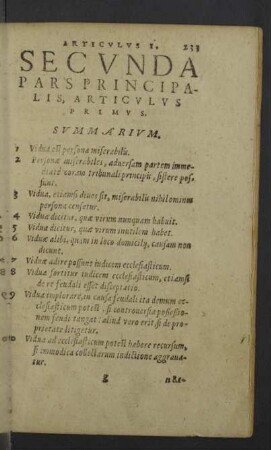 ARTICVLVS I. 233
SECVNDA
PARS PRINCIPA-
LIS, ARTICVLVS
PRIMVS.
SVMMARIVM.
1 Vidua est persona miserabilis.
2 Personæ miserabiles, aduersam partem imme-
diatè coram tribunali principis, sistere pos-
sunt.
3 Vidua, etiamsi diues sit, miserabilis nihilominus
persona censetur.
4 Vidua dicitur, quæ virum nunquam habuit.
5 Vidua dicitur, quæ virum inutilem habet.
6 Viduæ alibi, quàm in loco domicilij, causam non
dicunt.
7 Viduæ adire possunt iudicem ecclesiasticum.
8 Vidua sortitur iudicem ecclesiasticum, etiamsi
de re feudali esset disceptatio.
9 Vidua implorare, in causa feudali ita demum ec-
clesiasticum potest, si controuersia possessio-
nem feudi tangat: aliud vero erit si de pro-
prietate litigetur.
10 Vidua ad ecclesiasticum potest habere recursum,
si immodica collectarum indictione aggraua-
tur.
g nMa-